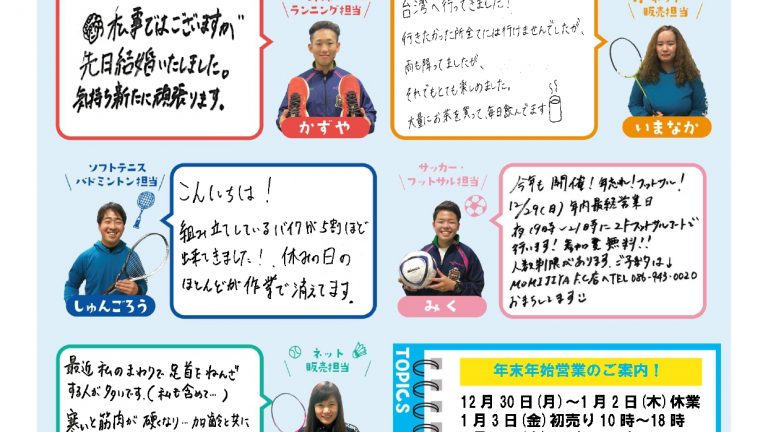 私事ではございますが
先日結婚いたしました。
気持ち新たに頑張ります。
ランニング担当
かずや
台湾へ行ってきました!
行きたかった所全てには行けませんでしたが、
雨も降ってましたが、
それでもとても楽しめました。
大量にお茶を買って、毎日飲んでます
販売担当
いまなか
ソフトテニス
バドミントン担当
しゅんごろう
こんにちは!
組み立てしているバイクが5割ほど
出来てきました!、休みの日の
ほとんどが作業で消えてます。
サッカー・
フットサル担当
みく
今年も開催!年忘れ!フットサル!
12/29(日)年内最終営業日
夜19時〜21時に2Fフットサルコートで
行います!参加費無料!!
人数制限があります。ご予約は↓
MOMIJIYA FC店へTEL 086-943-0020
おまちしてます
最近私のまわりで足首をねんざ
する人が多いです。(私も含めて…)
寒いと筋肉が硬くなり…加齢と共に
ネット
販売担当
TOPICS
年末年始営業のご案内!
12月30日(月)〜1月2日(木)休業
1月3日(金)初売り10時〜18時